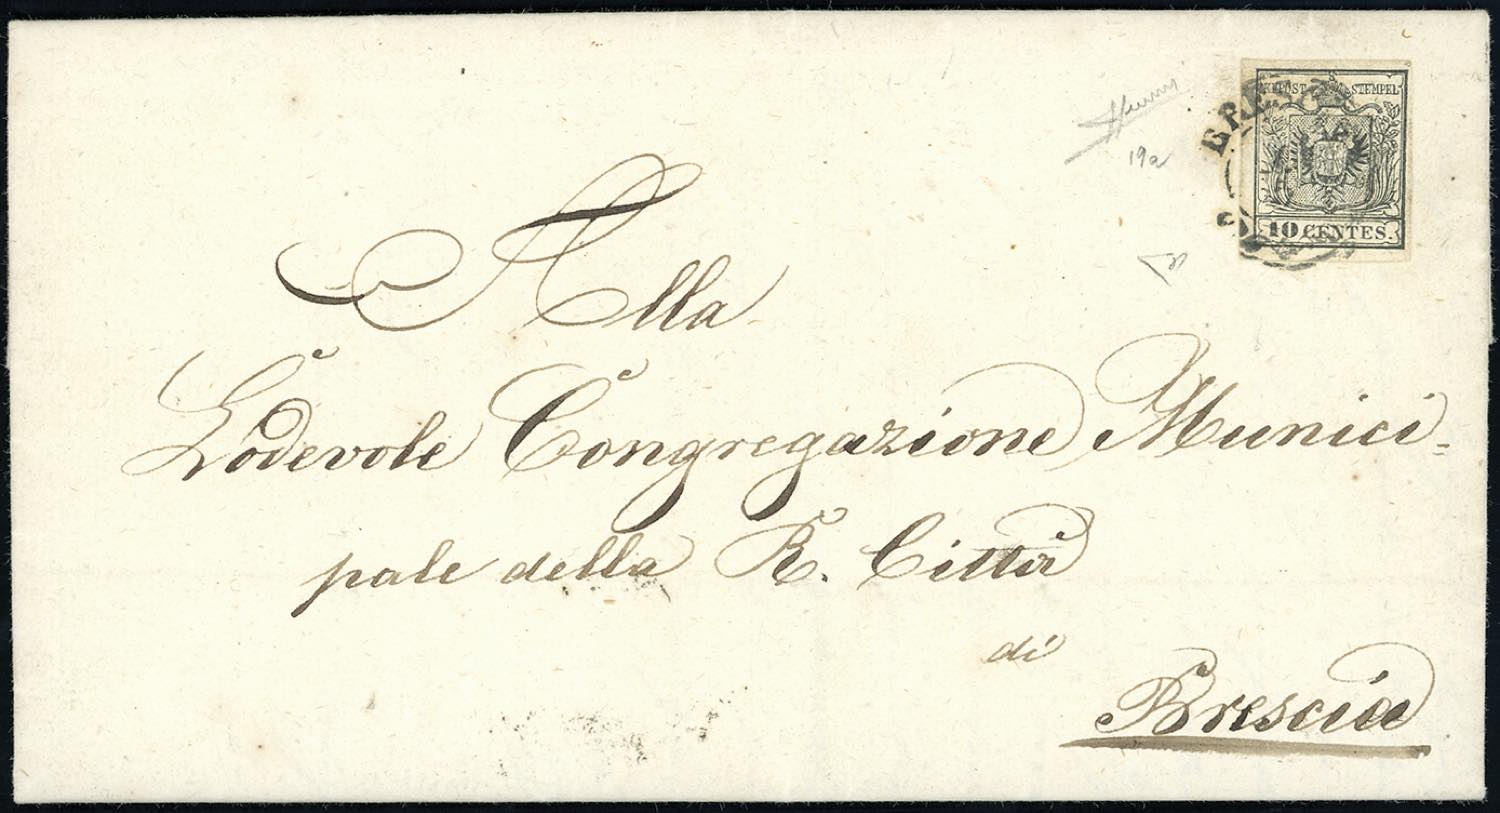 KKPOST STEMPEL
10 CENTES.
19a
Alla
Lodevole Congregazione Munici-
pale della R. Città
di
Brescia